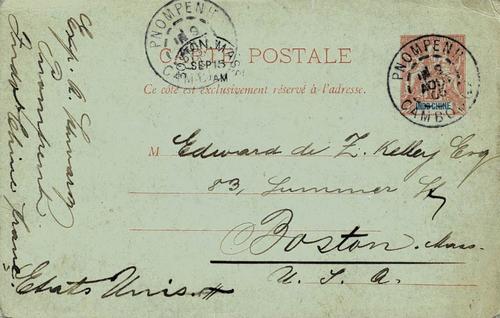 CARTE POSTALE
Ce côté est exclusivement réservé à l'adresse.
PNOMPENH
CAMBODGE
BOSTON, MASS.
SEP 15
AM
PNOMPENH
9
AOU
CAMBODGE
INDO-CHINE
10
M Edward de Z. Kelley Esq
83, Summer St,
Boston. Mass.
U. S. A.
Etats Unis
Exp. A.
Pnompenh
Indo Chine franc.